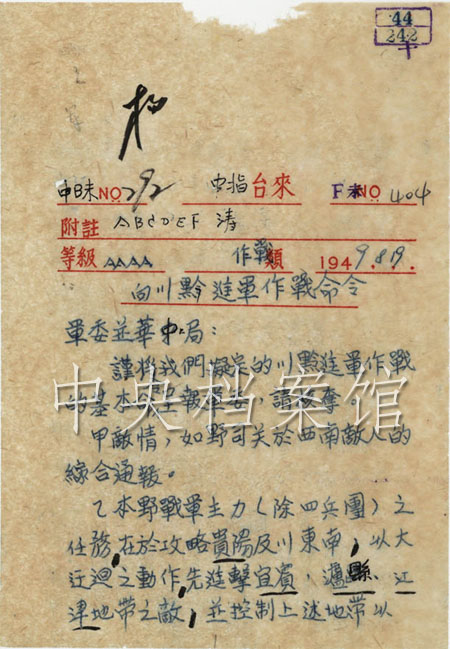 44
242
中日未NO292 中指台來 F未NO 404
附註 ABCDEF 涛
等級 AAAA 作戰類 1949.8.19.
向川黔進軍作戰命令
軍委並華中局：
謹將我們擬定的川黔進軍作戰
基本命令報軍委，請核奪
甲敵情，如野司关於西南敵人的
綜合通報。
乙本野戰軍主力（除四兵團）之
任務，在於攻略貴陽及川東南，以大
迂迴之動作，先進擊宜賓，瀘縣、江
津地帶之敵，並控制上述地帶以
中央档案馆